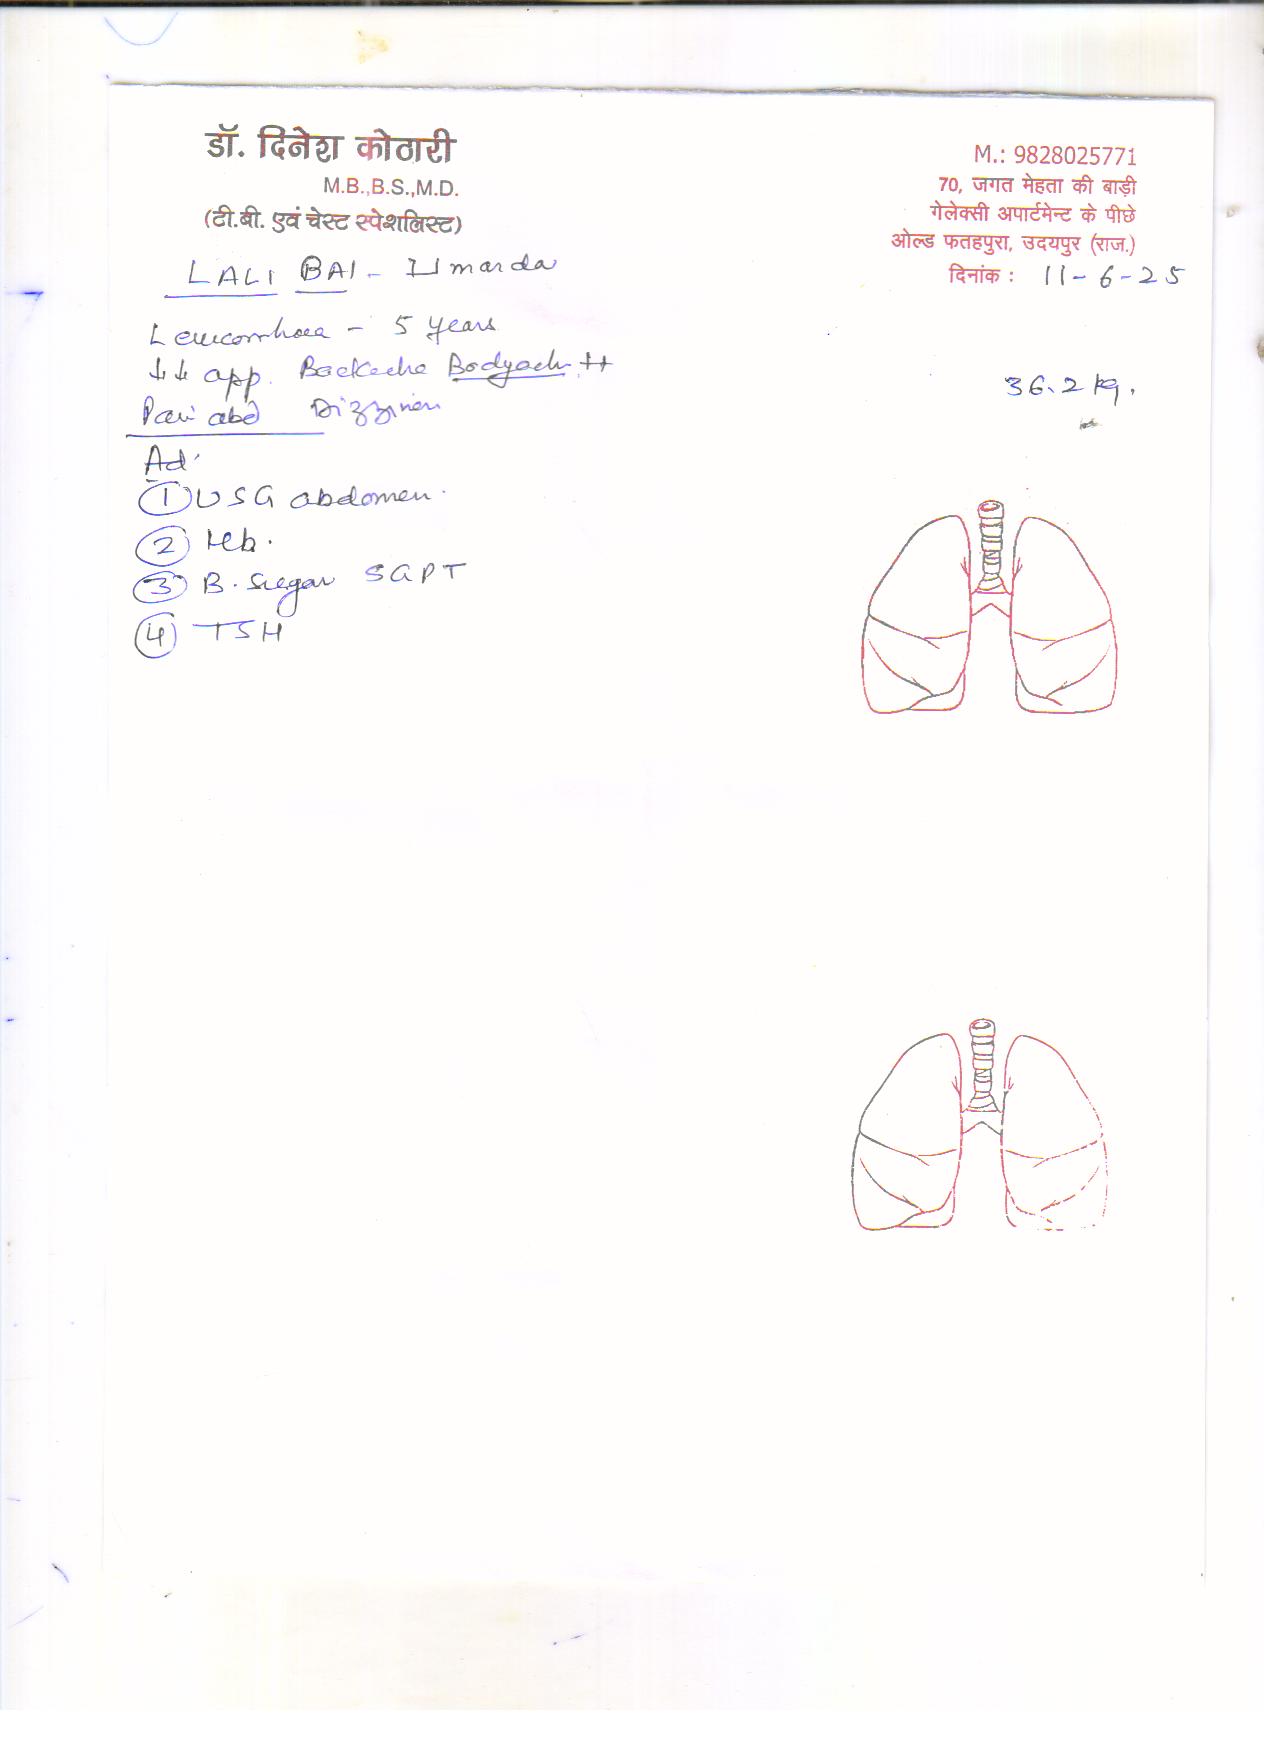 डॉ. दिनेश कोठारी
M.B.,B.S.,M.D.
(टी.बी. एवं चेस्ट स्पेशलिस्ट)
M.: 9828025771
70, जगत मेहता की बाड़ी
गेलेक्सी अपार्टमेन्ट के पीछे
ओल्ड फतहपुरा, उदयपुर (राज.)
दिनांक : 11-6-25
LALI BAI - Umarda
Leucorrhoea - 5 years
↓↓ app. Backache Bodyach ++
36.2 kg.
Pain abd Dizziness
Ad.
① USG abdomen.
② Hb.
③ B. Sugar SGPT
④ TSH